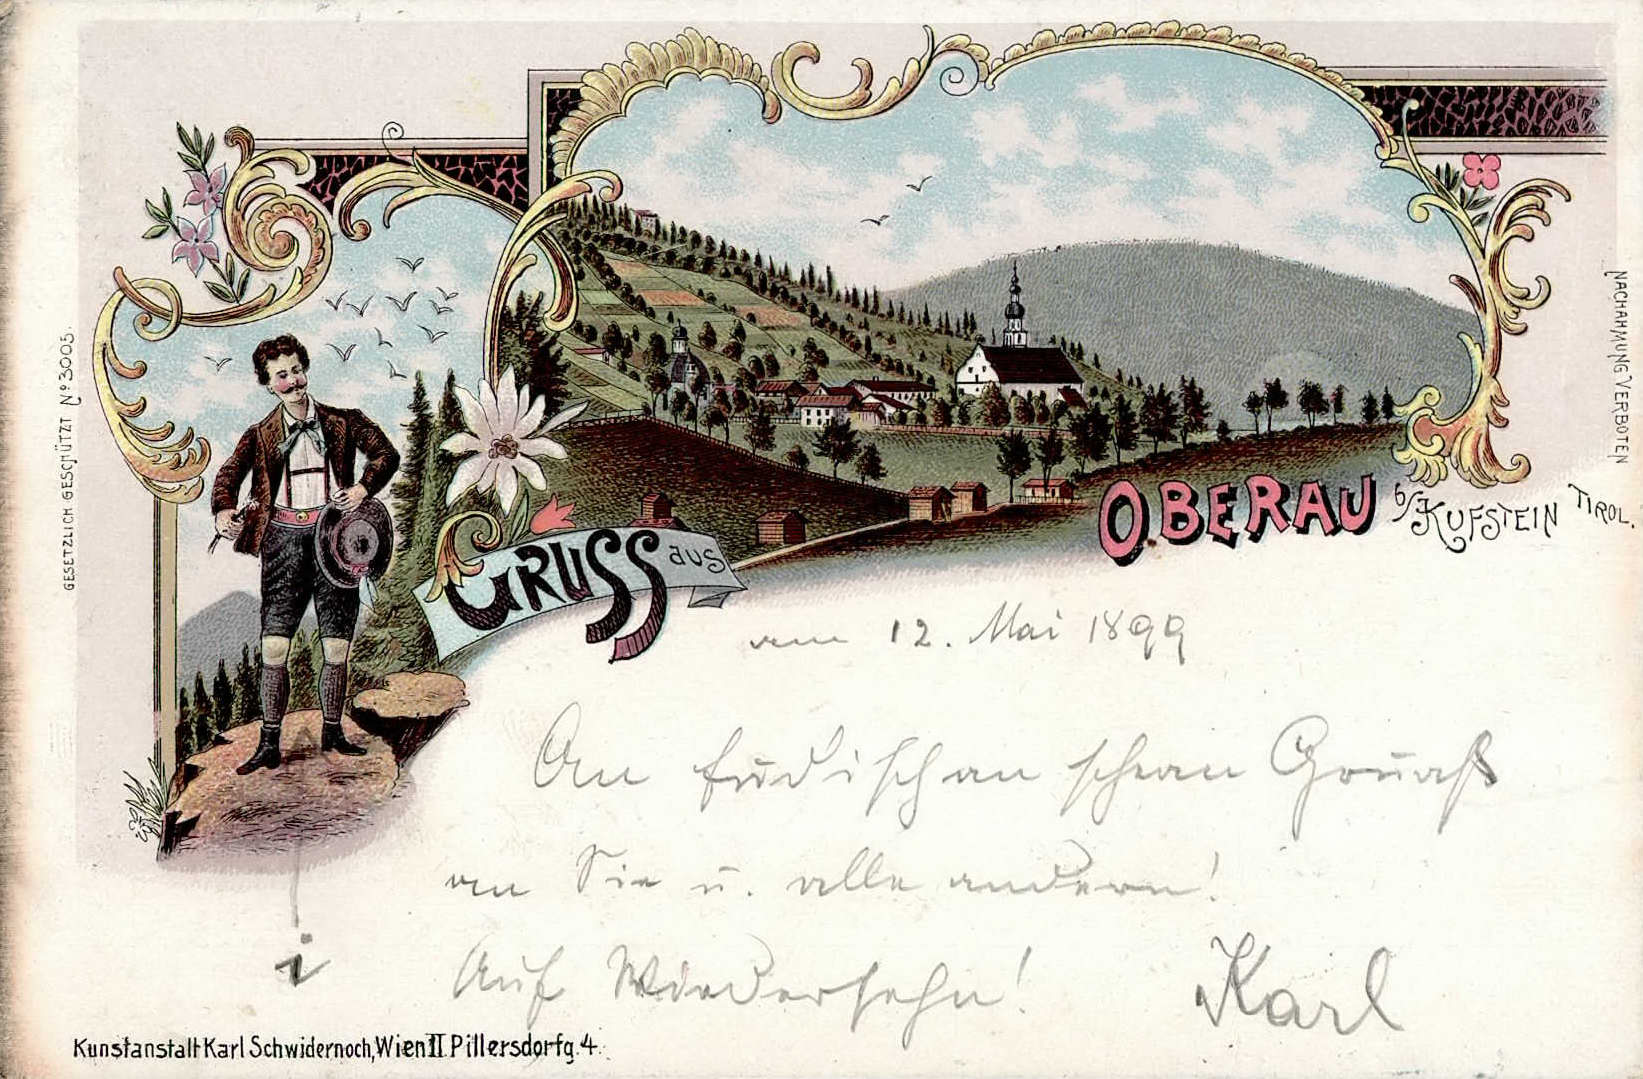 GESETZLICH GESCHÜTZT Nº 3005.
NACHAHMUNG VERBOTEN
GRUSS aus
OBERAU b/KUFSTEIN TIROL.
am 12. Mai 1899
An südischan schean Gruaß
an Sie u. alle andern!
i
Auf Wiedersehn! Karl
Kunstanstalt Karl Schwidernoch, Wien II Pillersdorfg. 4.